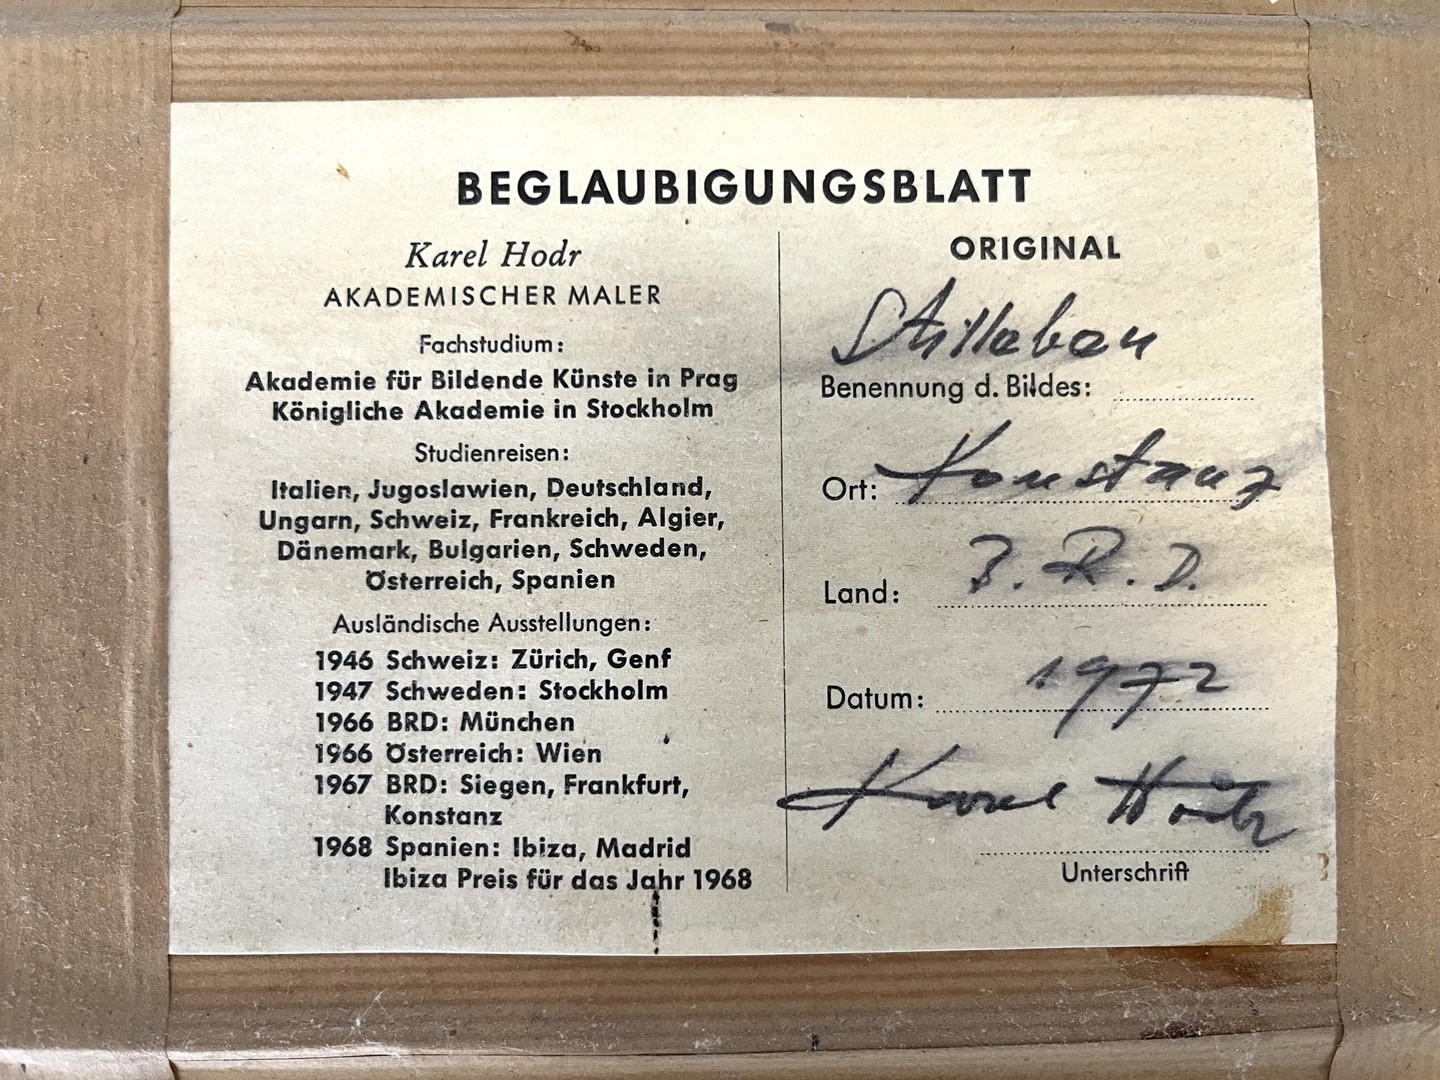 BEGLAUBIGUNGSBLATT
Karel Hodr
AKADEMISCHER MALER
Fachstudium:
Akademie für Bildende Künste in Prag
Königliche Akademie in Stockholm
Studienreisen:
Italien, Jugoslawien, Deutschland,
Ungarn, Schweiz, Frankreich, Algier,
Dänemark, Bulgarien, Schweden,
Österreich, Spanien
Ausländische Ausstellungen:
1946 Schweiz: Zürich, Genf
1947 Schweden: Stockholm
1966 BRD: München
1966 Österreich: Wien
1967 BRD: Siegen, Frankfurt,
Konstanz
1968 Spanien: Ibiza, Madrid
Ibiza Preis für das Jahr 1968
ORIGINAL
Stilleben
Benennung d. Bildes:
Ort: Konstanz
Land: B.R.D.
Datum: 1972
Karel Hodr
Unterschrift